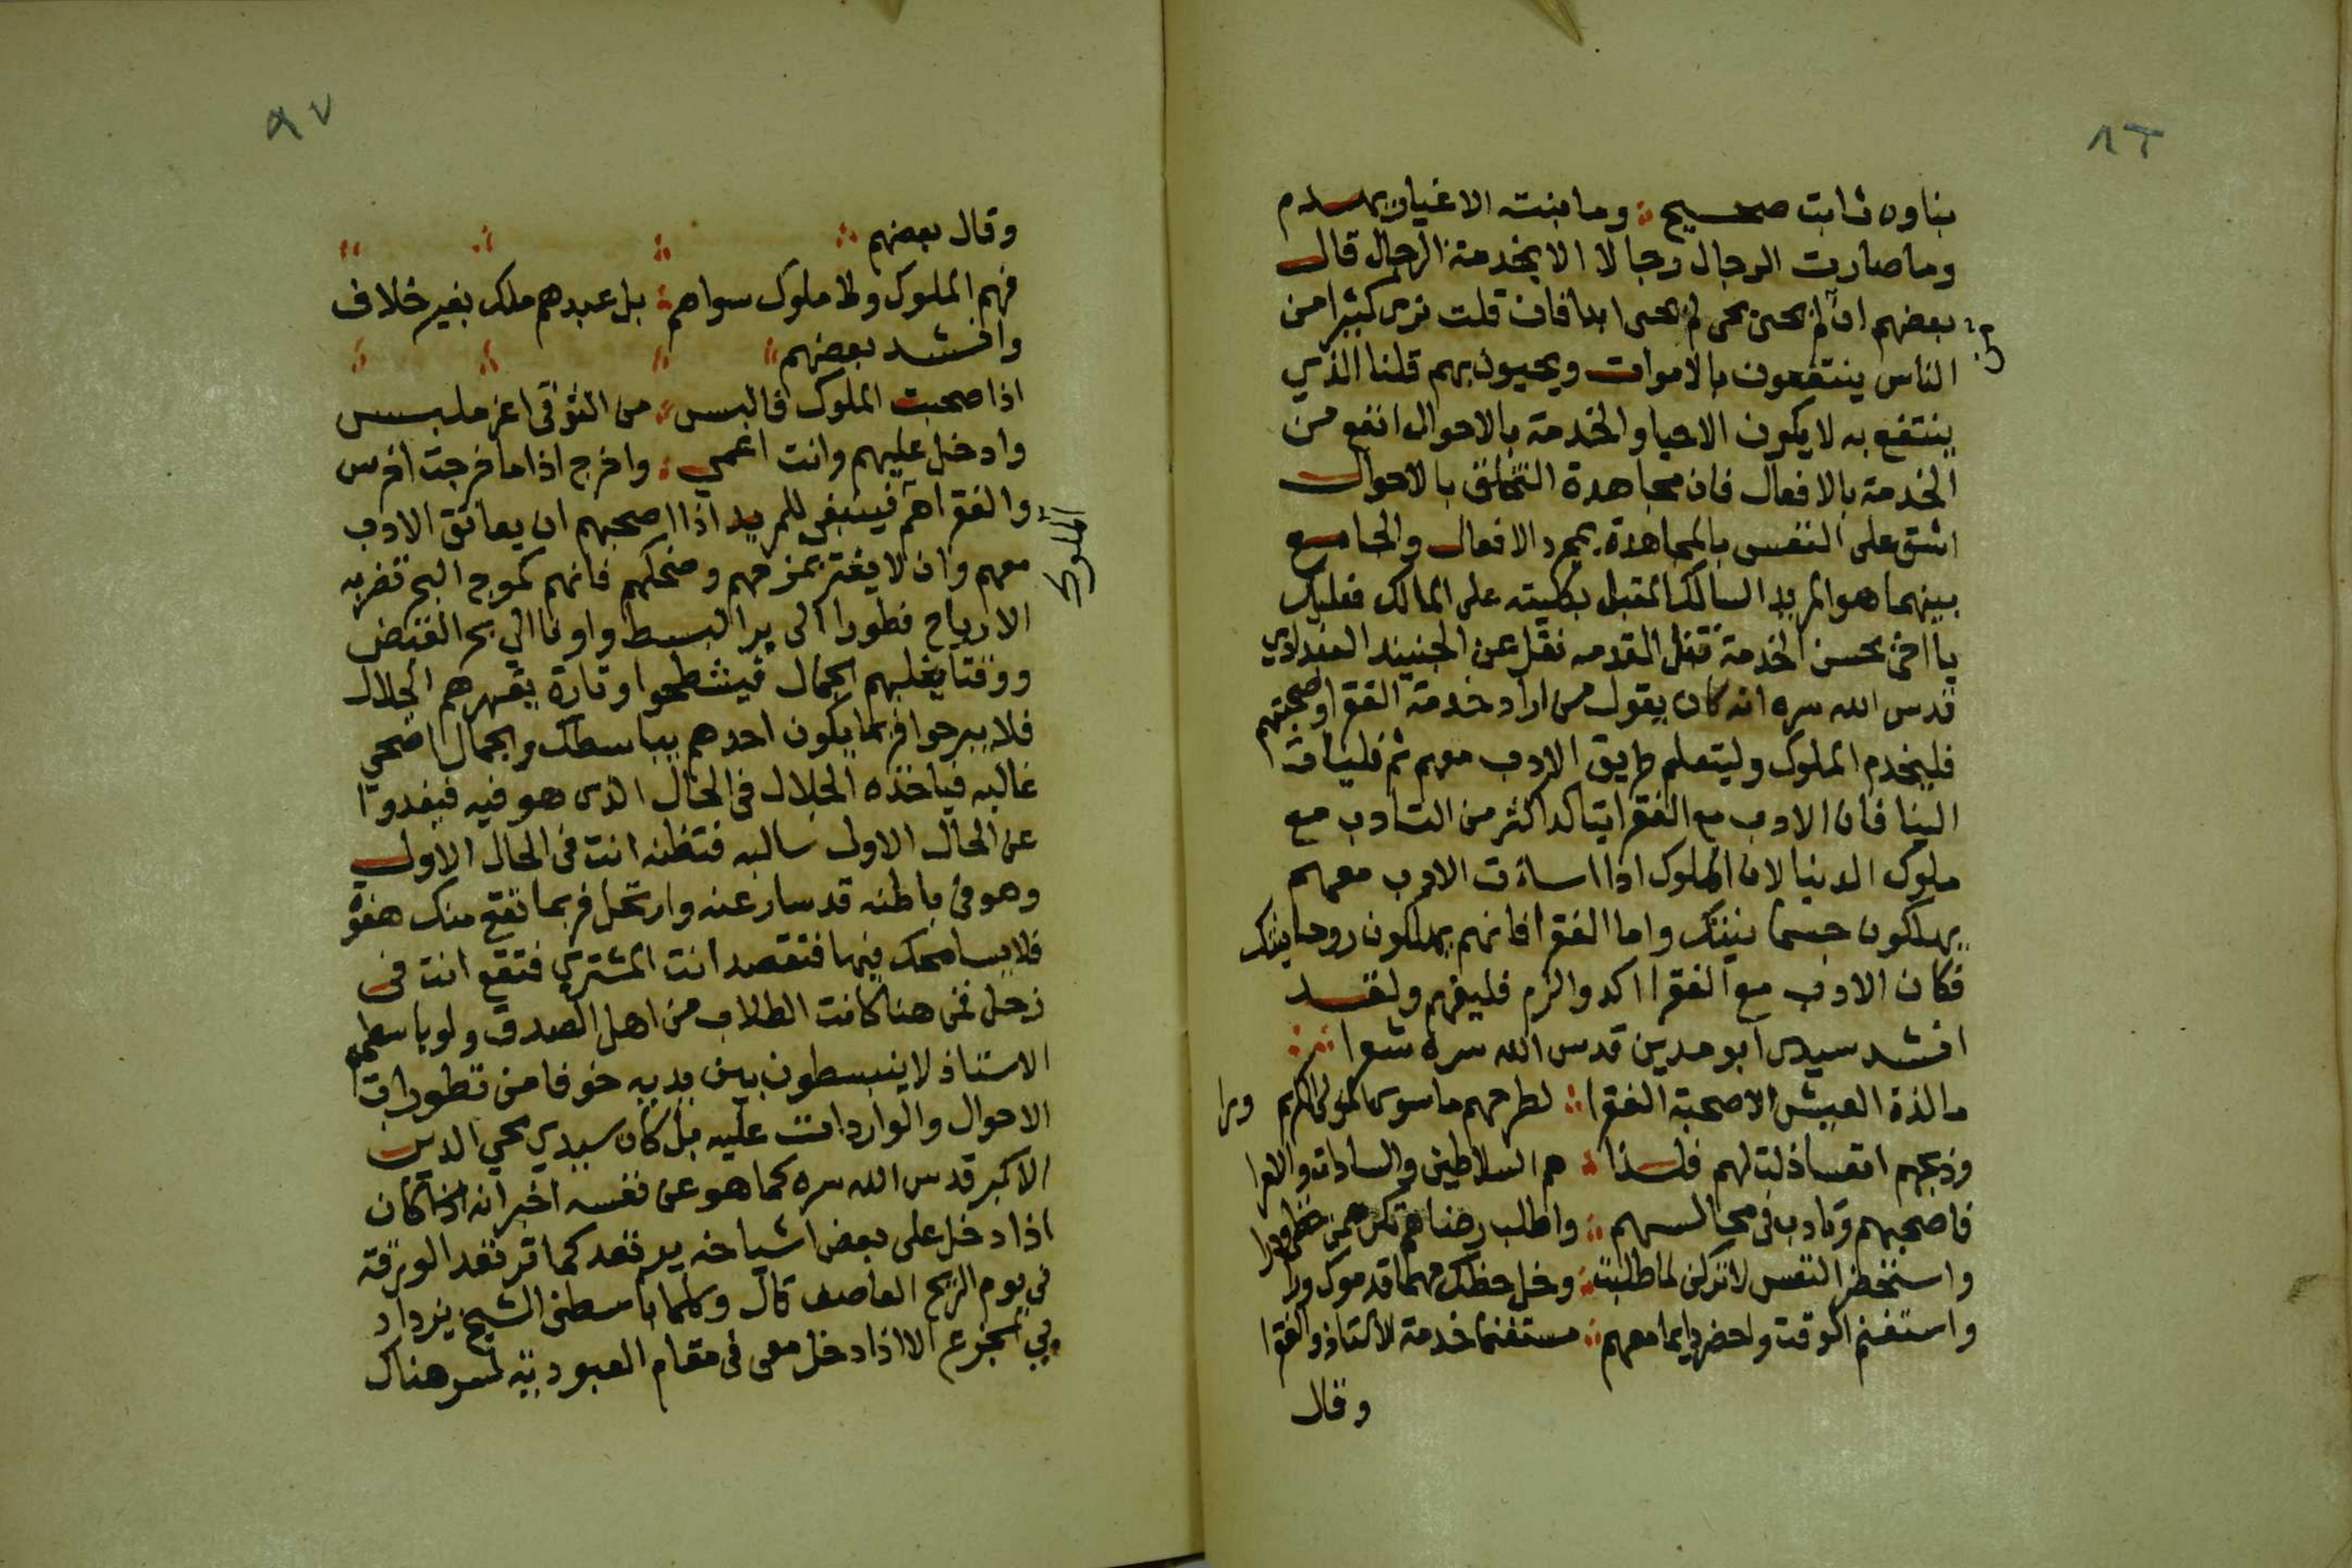 ٨٦
بناوه ثابت صحيح وما بنته الاغيار يهدم
وما صارت الرجال رجالا الا بخدمة الرجال قال
بعضهم ان لم يحى بحى لم يحى ابدا فان قلت نرى كثيرا من
الناس ينتفعون بالاموات ويحيون بهم قلنا الذي
ينتفع به لا يكون الاحيا والخدمة بالاحوال انفع من
الخدمة بالافعال فان مجاهدة التخلق بالاحوال
اشق على النفس بالمجاهدة بمجرد الافعال والجامع
بينهما هو المريد السالك المقبل بكليته على المالك فعليك
يا اخي بحسن الخدمة نقل عن الجنيد البغدادي
قدس الله سره انه كان يقول من اراد خدمة الفقرا وصحبتهم
فليخدم الملوك وليتعلم طريق الادب معهم ثم فليات
الينا فان الادب مع الفقرا يتاكد اكثر من التادب مع
ملوك الدنيا لان الملوك اذا اساءت الادب معهم
يهلكون جسمانيتك واما الفقرا فانهم يهلكون روحانيتك
فكان الادب مع الفقرا اكد والزم فليفهم ولقد
انشد سيدى ابو مدين قدس الله سره شعرا
ما لذة العيش الا صحبة الفقرا لطرحهم ما سوى المولى الكريم ورا
وذبحهم انفسا ذلت لهم فلذا هم السلاطين والسادات والامرا
فاصحبهم وتادب في مجالسهم واطلب رضاهم تكن
واستحضر النفس لا تركن لما طلبت وخل حظك مهما قدموك ورا
واستغنم الوقت واحضر دايما معهم مستغنما خدمة الاستاذ والفقرا
وقال
٨٧
وقال بعضهم
فهم الملوك ولا ملوك سواهم بل عبدهم ملك بغير خلاف
وانشد بعضهم
اذا صحبت الملوك فالبس من التوقى اعز ملبس
وادخل عليهم وانت اعمى واخرج اذا ما خرجت اخرس
الملوك
والفقرا هم فينبغى للمريد اذا اصحبهم ان يعانق الادب
معهم وان لا يغتر بمزحهم وضحكهم فانهم كموج البحر تضربه
الارياح فطورا الى بر البسط واونا الى بحر القبض
ووقتا يغلبهم الجمال فيشطحوا وتارة يقهرهم الجلال
فلا يبرحوا فربما يكون احدهم يباسطك والجمال اضحى
غالبه فياخذه الجلال فى الحال الذى هو فيه فيغدوا
عن الحال الاول سالبه فتظنه انت فى الحال الاول
وهو فى باطنه قد سار عنه وارتحل فربما تقع منك هفوة
فلا يسامحك فيها فتقصد انت المشتري فتقع انت فى
زحل فمن هنا كانت الطلاب من اهل الصدق ولو باسطهم
الاستاذ لا ينبسطون بين يديه خوفا من تطورات
الاحوال والواردات عليه بل كان سيدي محي الدين
الاكبر قدس الله سره كما هو عن نفسه اخبر انه كان
اذا دخل على بعض اشياخه يرتعد كما ترتعد الورقة
في يوم الريح العاصف قال وكلما باسطنى الشيخ يزداد
بي الا اذا دخل معى فى مقام العبودية لسر هناك